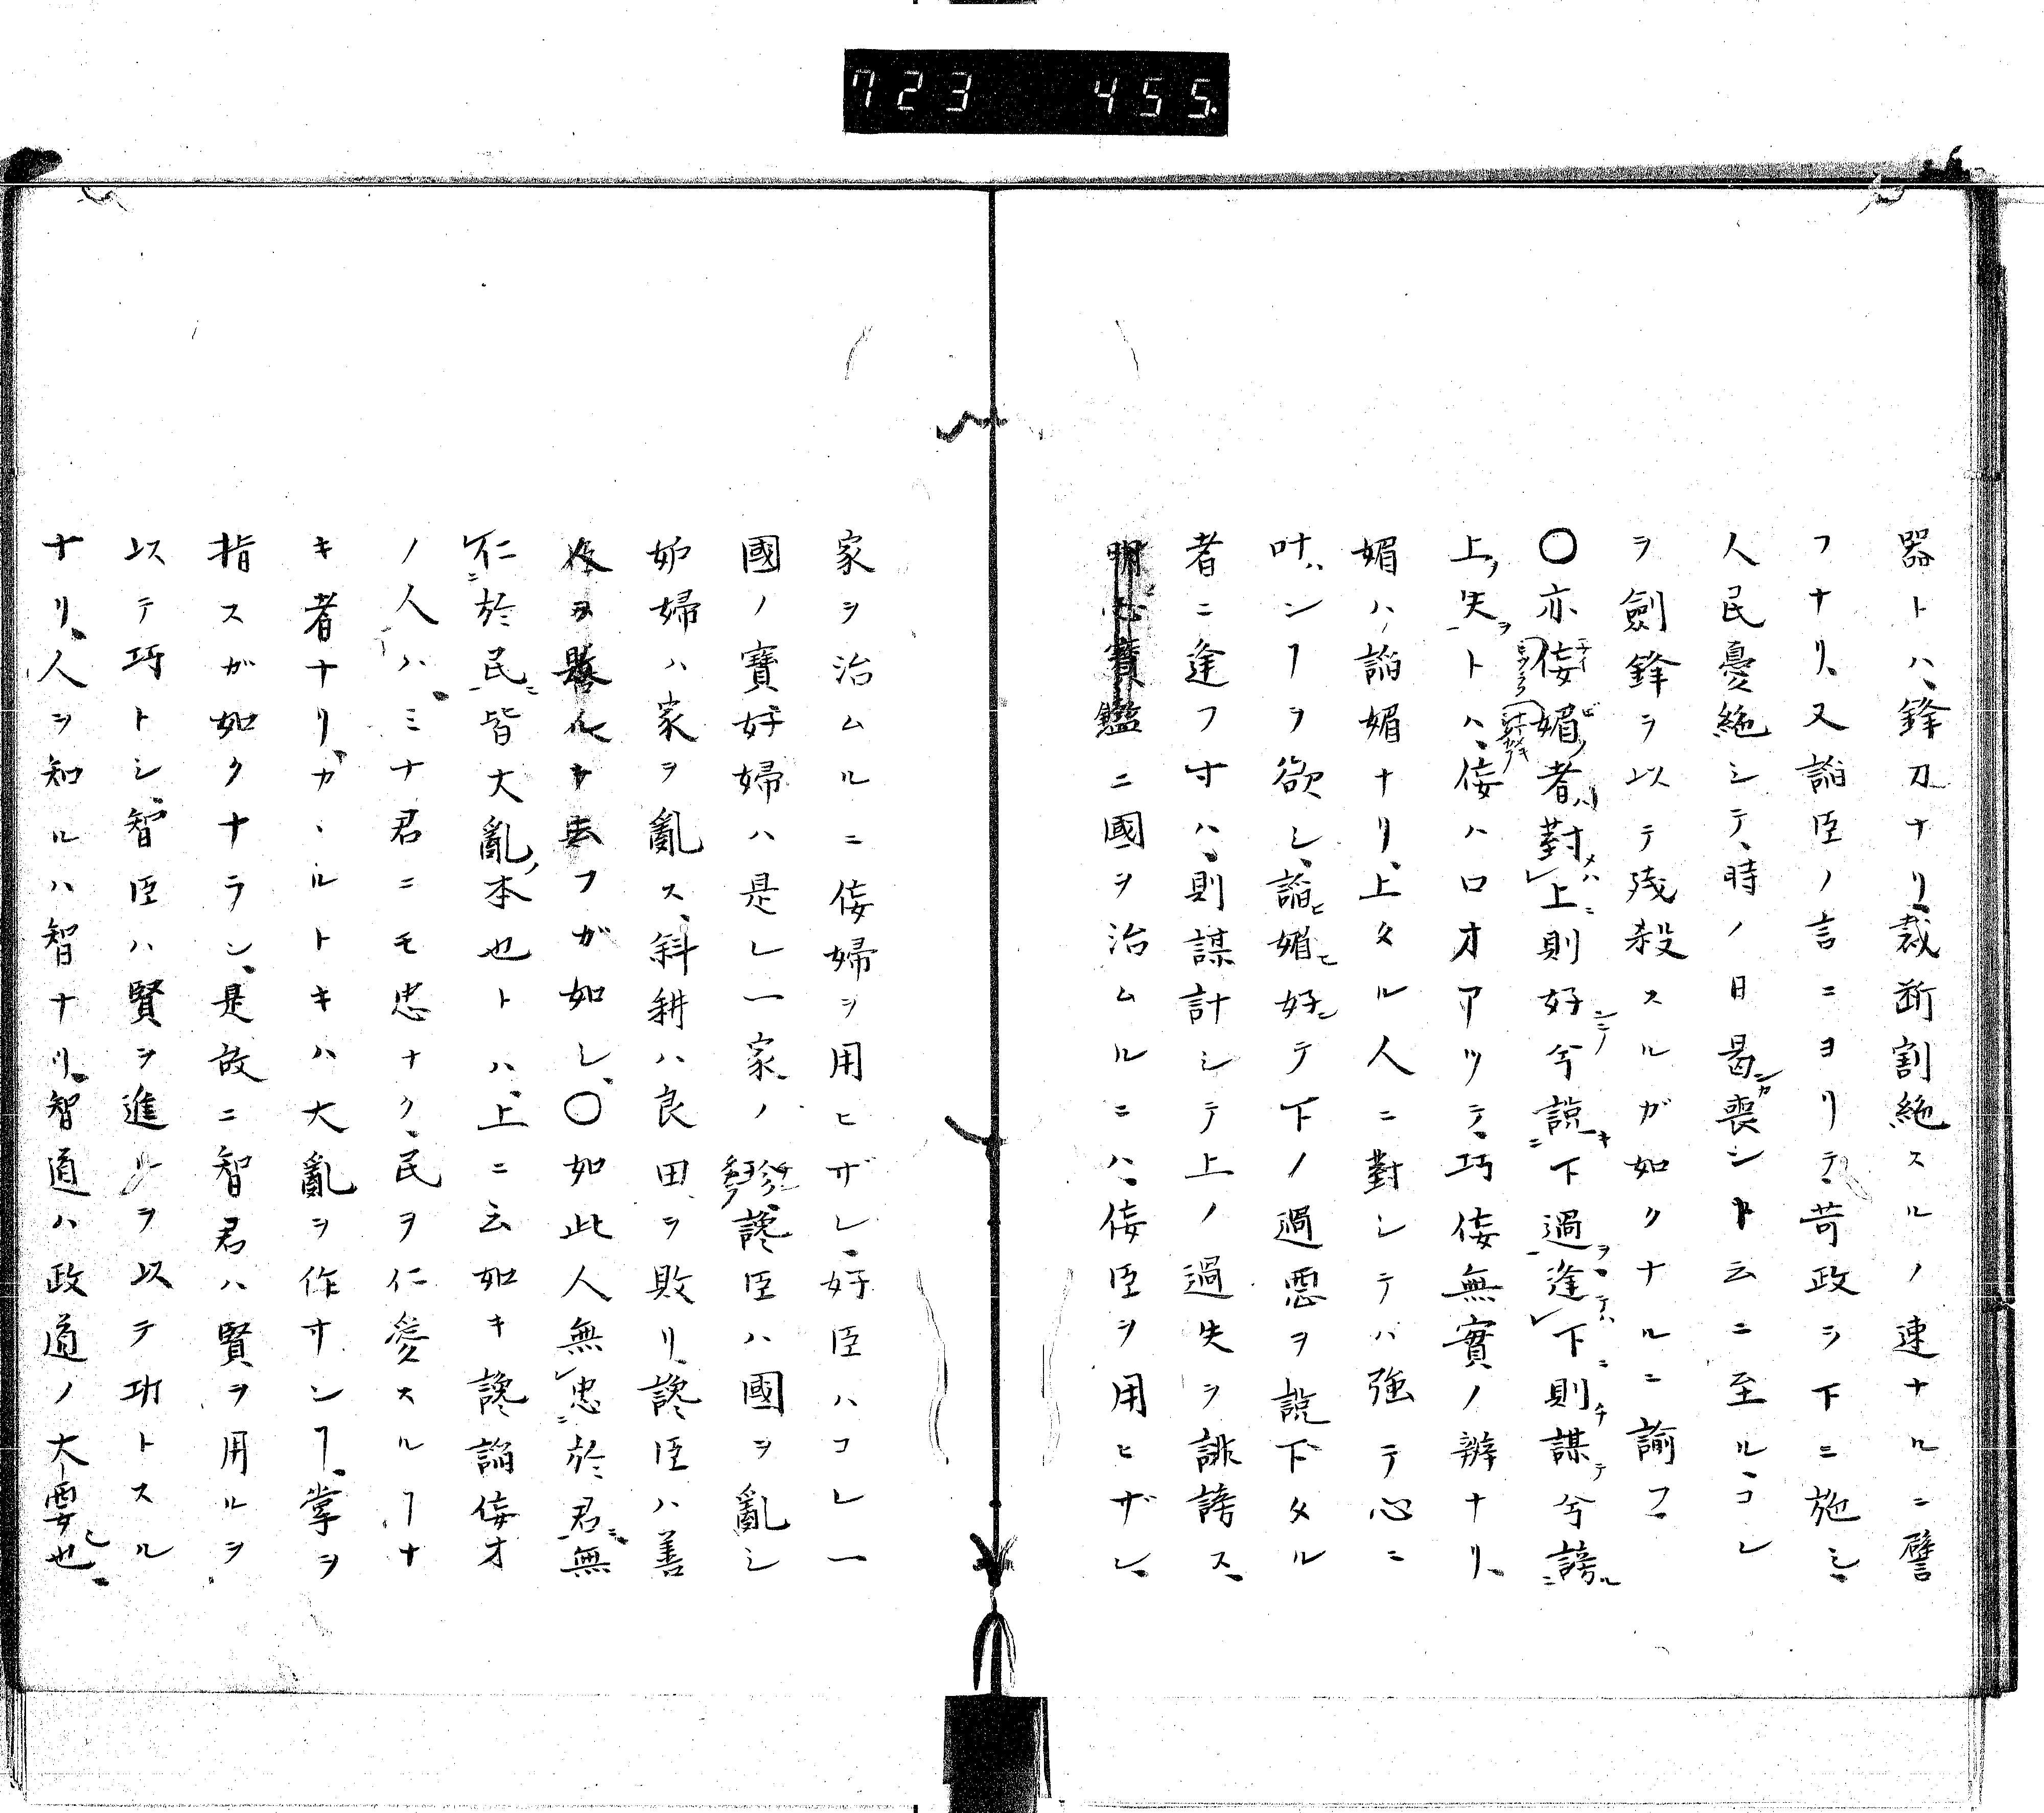 723 455.
器トハ、鋒刀ナリ、裁断割絶スルノ速ナルニ譬
フナリ、又諂臣ノ言ニヨリテ、苛政ヲ下ニ施シ、
人民憂絶シテ、時ノ日曷喪ント云ニ至ル、コレ
ヲ劔鋒ヲ以テ残殺スルガ如クナルニ諭フ
〇亦侫媚者對上則好兮説下過逢下則謀兮謗
上失トハ、侫ハ口才アツテ、巧侫無實ノ辨ナリ、
媚ハ、諂媚ナリ、上タル人ニ對シテハ強テ心ニ
叶ハンヿヲ欲シ、諂ヒ媚ヒ好ンテ下ノ過悪ヲ説下タル
者ニ逢フ寸ハ、則謀計シテ上ノ過失ヲ誹謗ス、
明心寶鑑ニ國ヲ治ムルニハ、侫臣ヲ用ヒザレ、
家ヲ治ムルニ侫婦ヲ用ヒザレ、好臣ハコレ一
國ノ寶好婦ハ是レ一家ノ珍、讒臣ハ國ヲ亂シ
妬婦ハ家ヲ亂ス、斜耕ハ良田ヲ敗リ、讒臣ハ善
人ヲ敗ルト云フガ如シ、〇如此人無忠於君無
仁於民皆大亂本也トハ、上ニ云如キ讒諂侫才
ノ人ハ、ミナ君ニモ忠ナク、民ヲ仁愛スルヿナ
キ者ナリ、カヽルトキハ大亂ヲ作サンヿ、掌ヲ
指スガ如クナラン、是故ニ智君ハ賢ヲ用ルヲ
以テ巧トシ、智臣ハ賢ヲ進ルヲ以テ功トスル
ナリ、人ヲ知ルハ智ナリ、智道ハ政道ノ大要也、